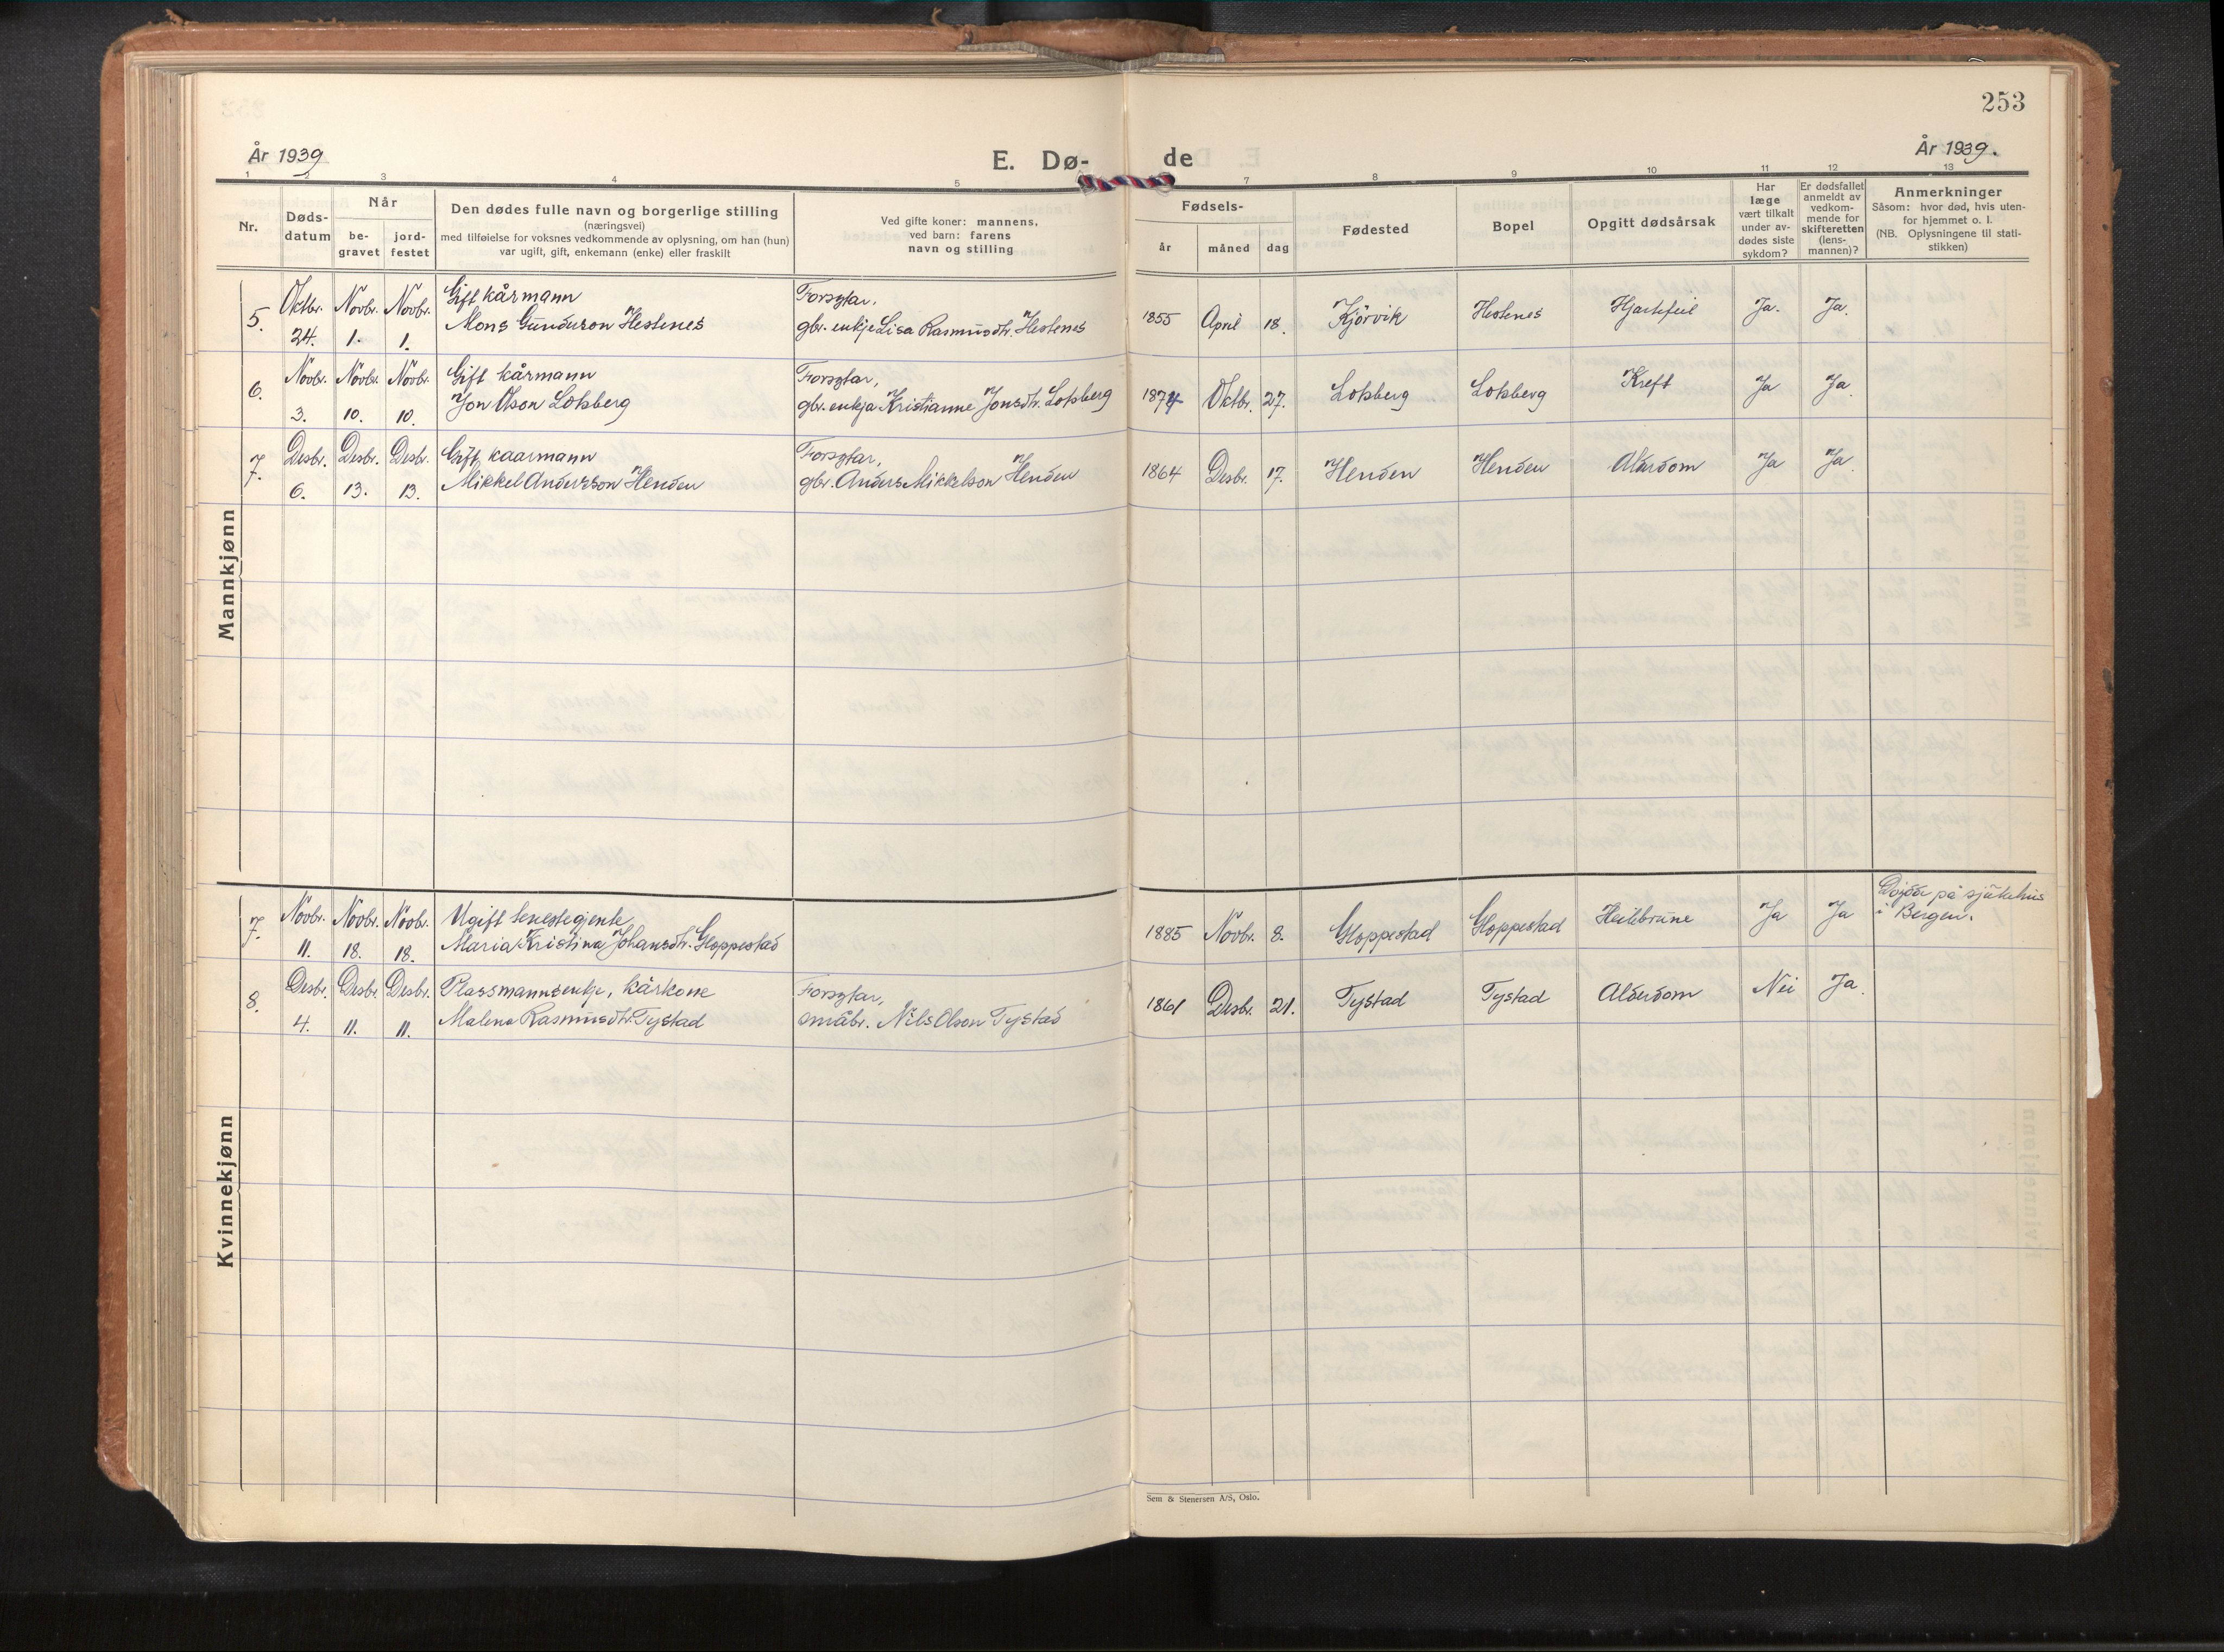 253
År 1939
E. Dø-
de
År 1939.
1 2 3 4 5 7 8 9 10 11 12 13
Nr.
Døds-
datum
Når
be-
gravet
jord-
festet
Den dødes fulle navn og borgerlige stilling
(næringsvei)
med tilføielse for voksnes vedkommende av oplysning, om han (hun)
var ugift, gift, enkemann (enke) eller fraskilt
Ved gifte koner: mannens,
ved barn: farens
navn og stilling
Fødsels-
år
måned
dag
Fødested
Bopel
Opgitt dødsårsak
Har
læge
vært tilkalt
under av-
dødes siste
sykdom?
Er dødsfallet
anmeldt av
vedkom-
mende for
skifteretten
(lens-
mannen)?
Anmerkninger
Såsom: hvor død, hvis uten-
for hjemmet o. l.
(NB. Oplysningene til stati-
stikken)
Mannkjønn
5. Oktbr. Novbr. Novbr. Gift kårmann Forsytar,
24. 1. 1. Mons Gunderson Hestenes gbr. enkje Lisa Rasmusdtr. Hestenes 1855 April 18. Kjörvik Hestenes Hjartefeil Ja. Ja.
6. Novbr. Novbr. Novbr. Gift kårmann Forsytar,
3. 10. 10. Jon Olson Lotsberg gbr. enkja Kristianne Jonsdtr. Lotsberg 1874 Oktbr. 27. Lotsberg Lotsberg Kreft Ja Ja.
7. Desbr. Desbr. Desbr. Gift kaarmann Forsytar,
6. 13. 13. Mikkel Anderson Henden gbr. Anders Mikkelson Henden 1864 Desbr. 17. Henden Henden Alderdom Ja Ja.
Kvinnekjønn
7. Novbr. Novbr. Novbr. Ugift tenestegjente
11. 18. 18. Maria Kristina Johansdtr. Gloppestad 1885 Novbr. 8. Gloppestad Gloppestad Heilebrune Ja Ja Döydde på sjukehus
i Bergen.
8. Desbr. Desbr. Desbr. Plassmannsenkje, kårkone Forsytar,
4. 11. 11. Malena Rasmusdtr. Tystad småbr. Nils Olson Tystad 1861 Desbr. 21. Tystad Tystad Alderdom Nei Ja.
Sem & Stenersen A/S, Oslo.